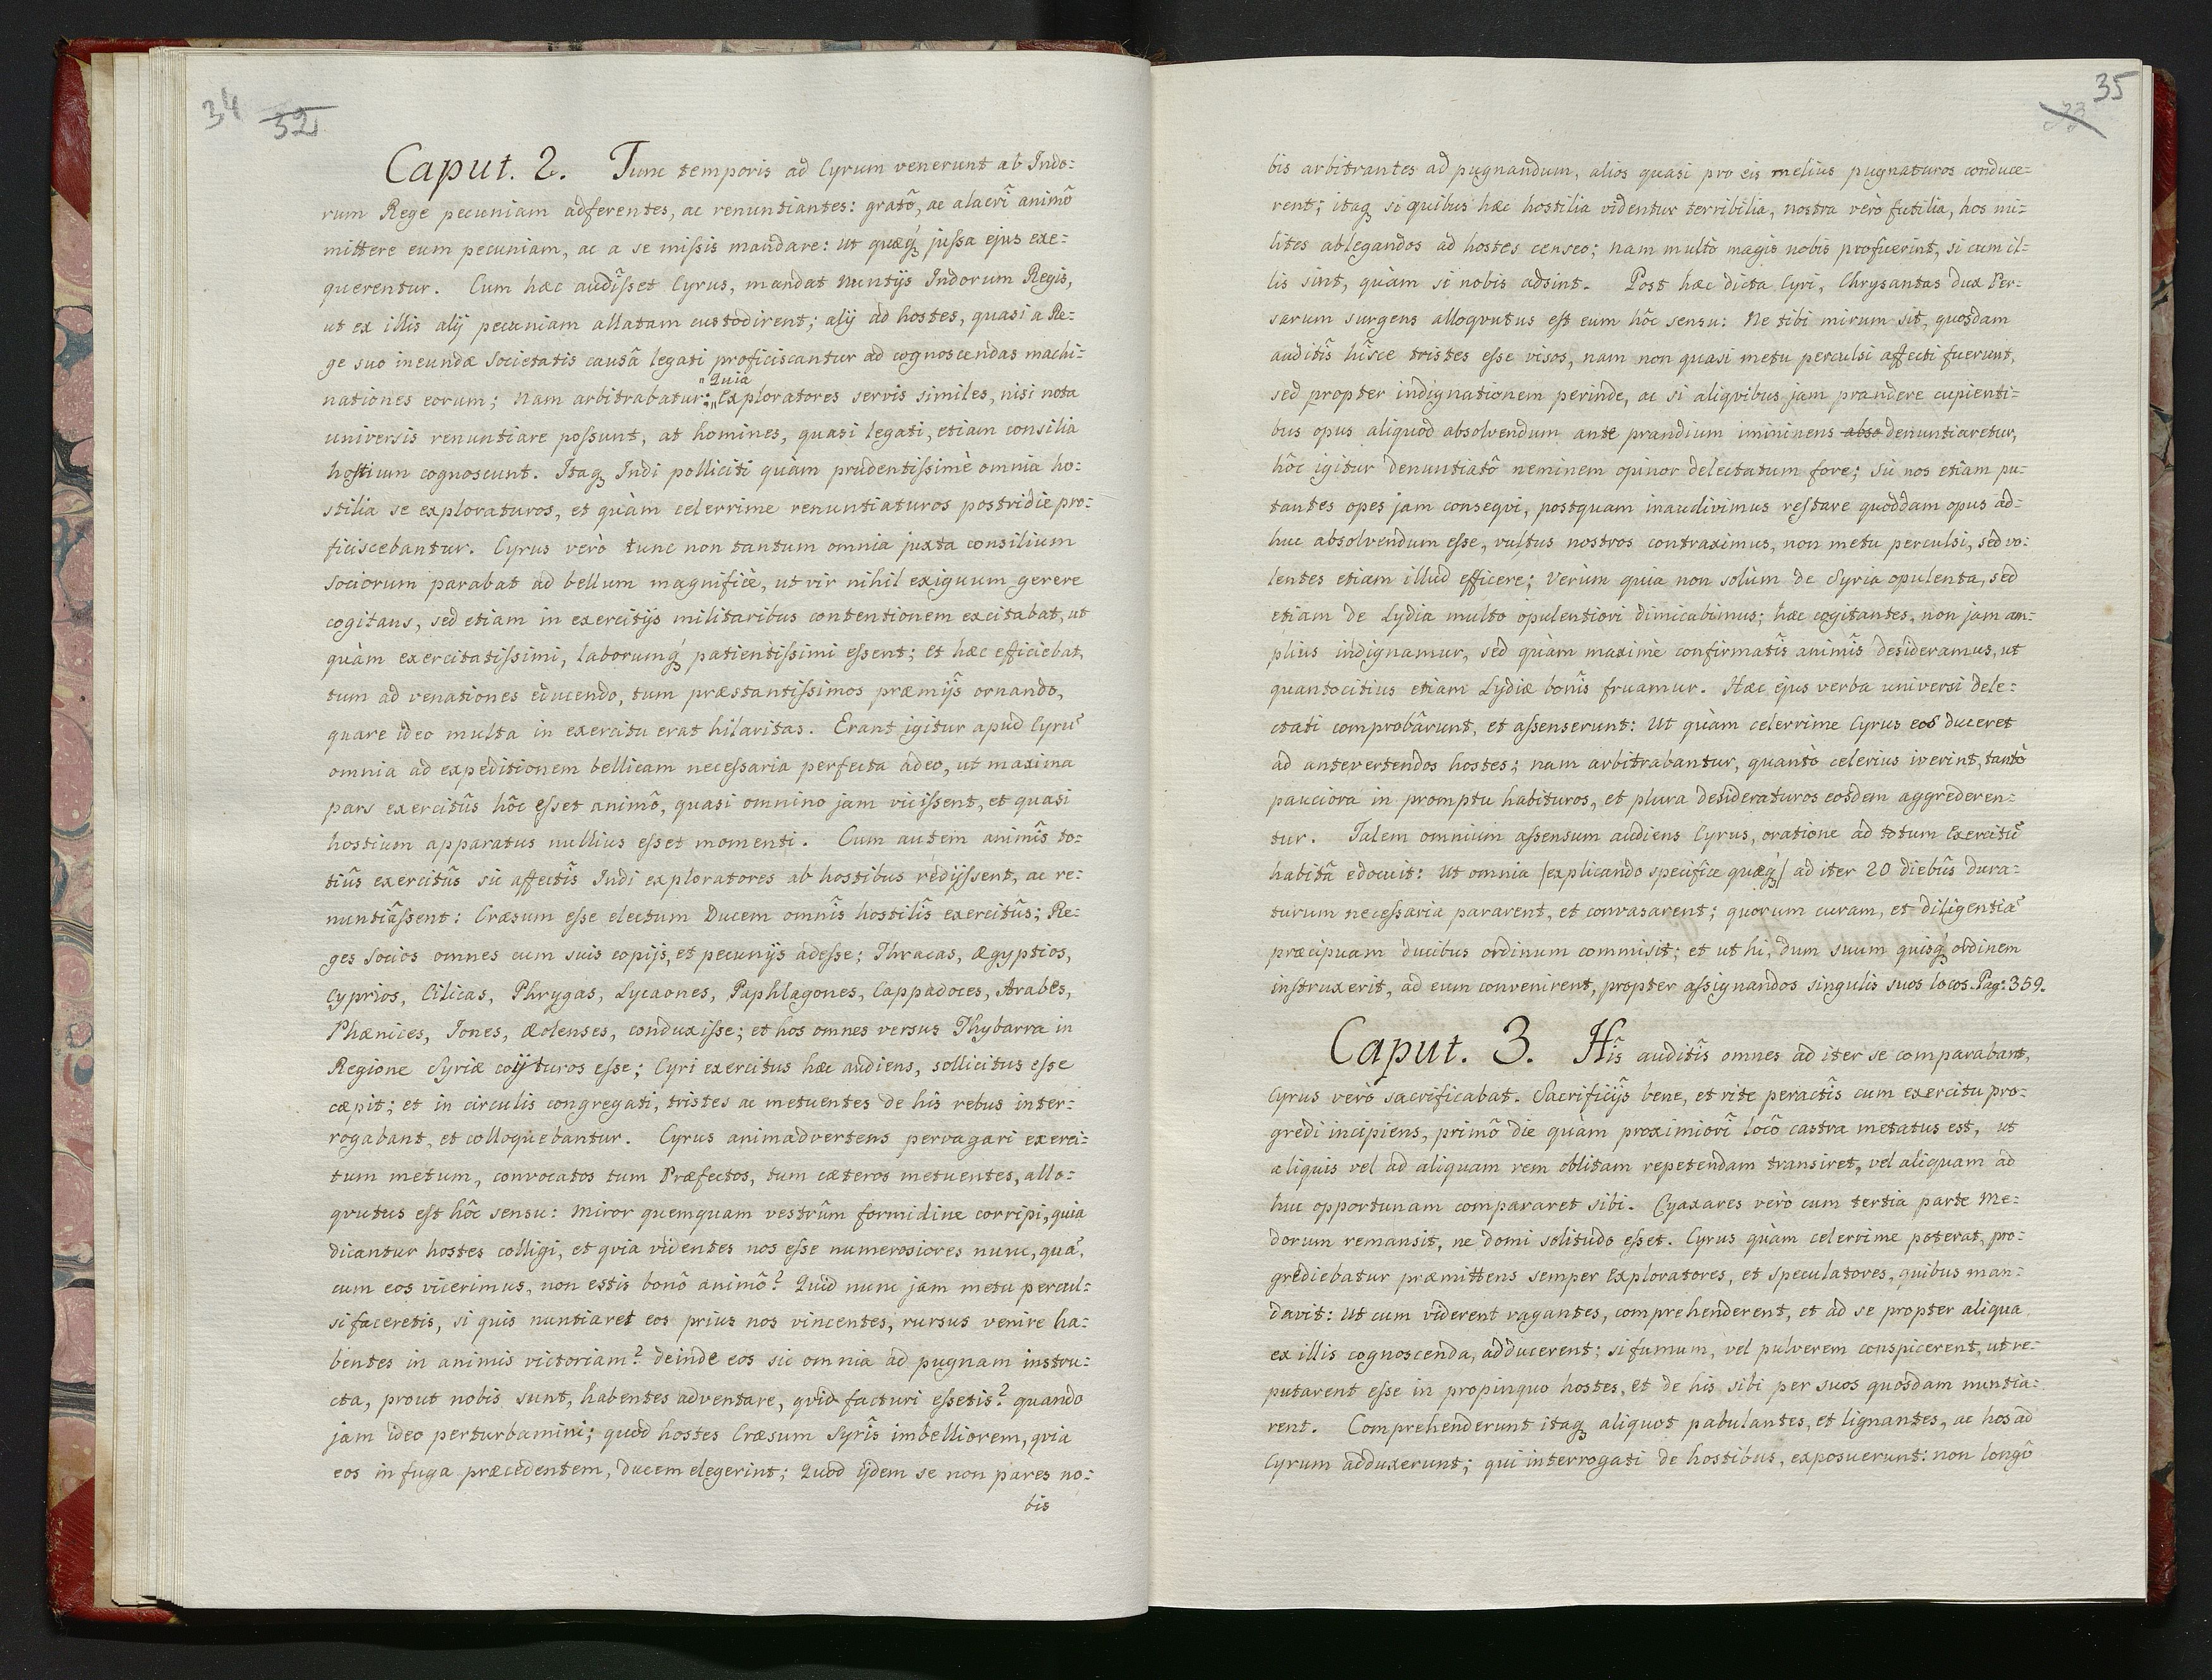 34 32
Caput. 2. Tunc temporis ad Cyrum venerunt ab Indo:
rum Rege pecuniam adferentes, ac renuntiantes: gratô, ac alacrî animô
mittere eum pecuniam, ac a se missis mandare: ut quæq́ʒ jussa ejus exe:
querentur. Cum hæc audîsset Cyrus, mandat Nuntijs Indorum Regis,
ut ex illis alij pecuniam allatam custodirent; alij ad hostes, quasi a Re:
ge suo ineundæ Societatis causâ legati proficiscantur ad cognoscendas machi:
" Quia
nationes eorum; Nam arbitrabatur:„ exploratores servis similes, nisi nota
universis renuntiare possunt, at homines, quasi legati, etiam consilia
hostium cognoscunt. Itaqʒ Indi polliciti quàm prudentissimè omnia ho:
stilia se exploraturos, et quàm celerrime renuntiaturos postridie pro:
ficiscebantur. Cyrus verò tunc non tantum omnia juxta consilium
Sociorum parabat ad bellum magnificè, ut vir nihil exiguum gerere
cogitans, sed etiam in exercitijs militaribus contentionem excitabat, ut
quàm exercitatissimi, laborumq́ʒ patientissimi essent; et hæc efficiebat,
tum ad venationes educendo, tum præstantissimos præmijs̃ ornando,
quare ideo multa in exercitu erat hilaritas. Erant igitur apud Cyrũ
omnia ad expeditionem bellicam necessaria perfecta adeo, ut maxima
pars exercitûs hôc esset animô, quasi omnino jam vicissent, et quasi
hostium apparatus nullius esset momenti. Cum autem animîs to:
tiûs exercitûs sic affectîs Indi exploratores ab hostibus redijssent, ac re:
nuntiâssent: Cræsum esse electum Ducem omnîs hostilîs exercitûs; Re:
ges Socios omnes cum suis copijs, et pecunijs adesse; Thracas, Ægyptios,
Cyprios, Cilicas, Phrygas, Lycaones, Paphlagones, Cappadoces, Arabes,
Phænices, Iones, Æolenses, conduxisse; et hos omnes versus Thybarra in
Regione Syriæ coijturos esse; Cyri exercitus hæc audiens, sollicitus esse
cæpit; et in circulis congregati, tristes ac metuentes de his rebus inter:
rogabant, et colloquebantur. Cyrus animadvertens pervagari exerci:
tum metum, convocatos tum Præfectos, tum cæteros metuentes, allo:
qvutus est hôc sensu: Miror quemquam vestrûm formidine corripi, quia
dicantur hostes colligi, et qvia videntes nos esse numerosiores nunc, quã,
cum eos vicerimus, non estis bonô animô? Quid nunc jam metu percul:
si faceretis, si quis nuntiaret eos prius nos vincentes, rursus venire ha:
bentes in animis victoriam? deinde eos sic omnia ad pugnam instru:
cta, prout nobis sunt, habentes adventare, qvid facturi essetis? quando
jam ideo perturbamini; quod hostes Cræsum Syrîs imbelliorem, qvia
eos in fuga præcedentem, ducem elegerint; Quod ijdem se non pares no:
bis
35
33
bis arbitrantes ad pugnandum, alios quasi pro eis melius pugnaturos conduce:
rent; itaqʒ si quibus hæc hostilia videntur terribilia, nostra verò futilia, hos mi:
lites ablegandos ad hostes censeo; nam multò magis nobis profuerint, si cum il:
lis sint, quàm si nobis adsint. Post hæc dicta Cyri, Chrysantas dux Per:
sarum surgens alloqvutus est eum hôc sensu: Ne tibi mirum sit, quosdam
auditîs hîsce tristes esse visos, nam non quasi metu perculsi affecti fuerunt,
sed propter indignationem perinde, ac si aliqvibus jam prandere cupienti:
bus opus aliquod absolvendum ante prandium imminens abso denuntiaretur,
hôc igitur denuntiatô neminem opinor delectatum fore; sic nos etiam pu:
tantes opes jam conseqvi, postquam inaudivimus restare quoddam opus ad:
huc absolvendum esse, vultus nostros contraximus, non metu perculsi, sed vo:
lentes etiam illud efficere; Verùm quia non solùm de Syria opulenta, sed
etiam de Lydia multo opulentiori dimicabimus; hæc cogitantes, non jam am:
plius indignamur, sed quàm maximè confirmatîs animîs desideramus, ut
quantocitius etiam Lydiæ bonîs fruamur. Hæc ejus verba universi dele:
ctati comprobârunt, et assenserunt: Ut quàm celerrime Cyrus eos duceret
ad antevertendos hostes; nam arbitrabantur, quantò celerius iverint, tantò
pauciora in promptu habituros, et plura desideraturos eosdem aggrederen:
tur. Talem omnium assensum audiens Cyrus, oratione ad totum Exercitũ
habitâ edocuit: Ut omnia /explicando specifice quæq́ʒ/ ad iter 20 diebûs dura:
turum necessaria pararent, et convasarent; quorum curam, et diligentiã
præcipuam ducibus ordinum commisit; et ut hi, dum suum quisq́ʒ ordinem
instruxerit, ad eum convenirent, propter assignandos singulis suos locos. Pag: 359.
Caput. 3. Hîs auditîs omnes ad iter se comparabant,
Cyrus verò sacrificabat. Sacrificijs̃ bene, et rite peractîs cum exercitu pro:
gredi incipiens, primô die quàm proximiorî locô castra metatus est, ut
aliquis vel ad aliquam rem oblitam repetendam transiret, vel aliquam ad
huc opportunam compararet sibi. Cyaxares verò cum tertia parte Me:
dorum remansit, ne domi solitudo esset. Cyrus quàm celerrime poterat, pro:
grediebatur præmittens semper Exploratores, et Speculatores, quibus man:
davit: Ut cum viderent vagantes, comprehenderent, et ad se propter aliqua
ex illis cognoscenda, adducerent; si fumum, vel pulverem conspicerent, ut re:
putarent esse in propinquo hostes, et de his, sibi per suos quosdam nuntia:
rent. Comprehenderunt itaqʒ aliquot pabulantes, et lignantes, ac hos ad
Cyrum adduxerunt; qui interrogati de hostibus, exposuerunt: non longô